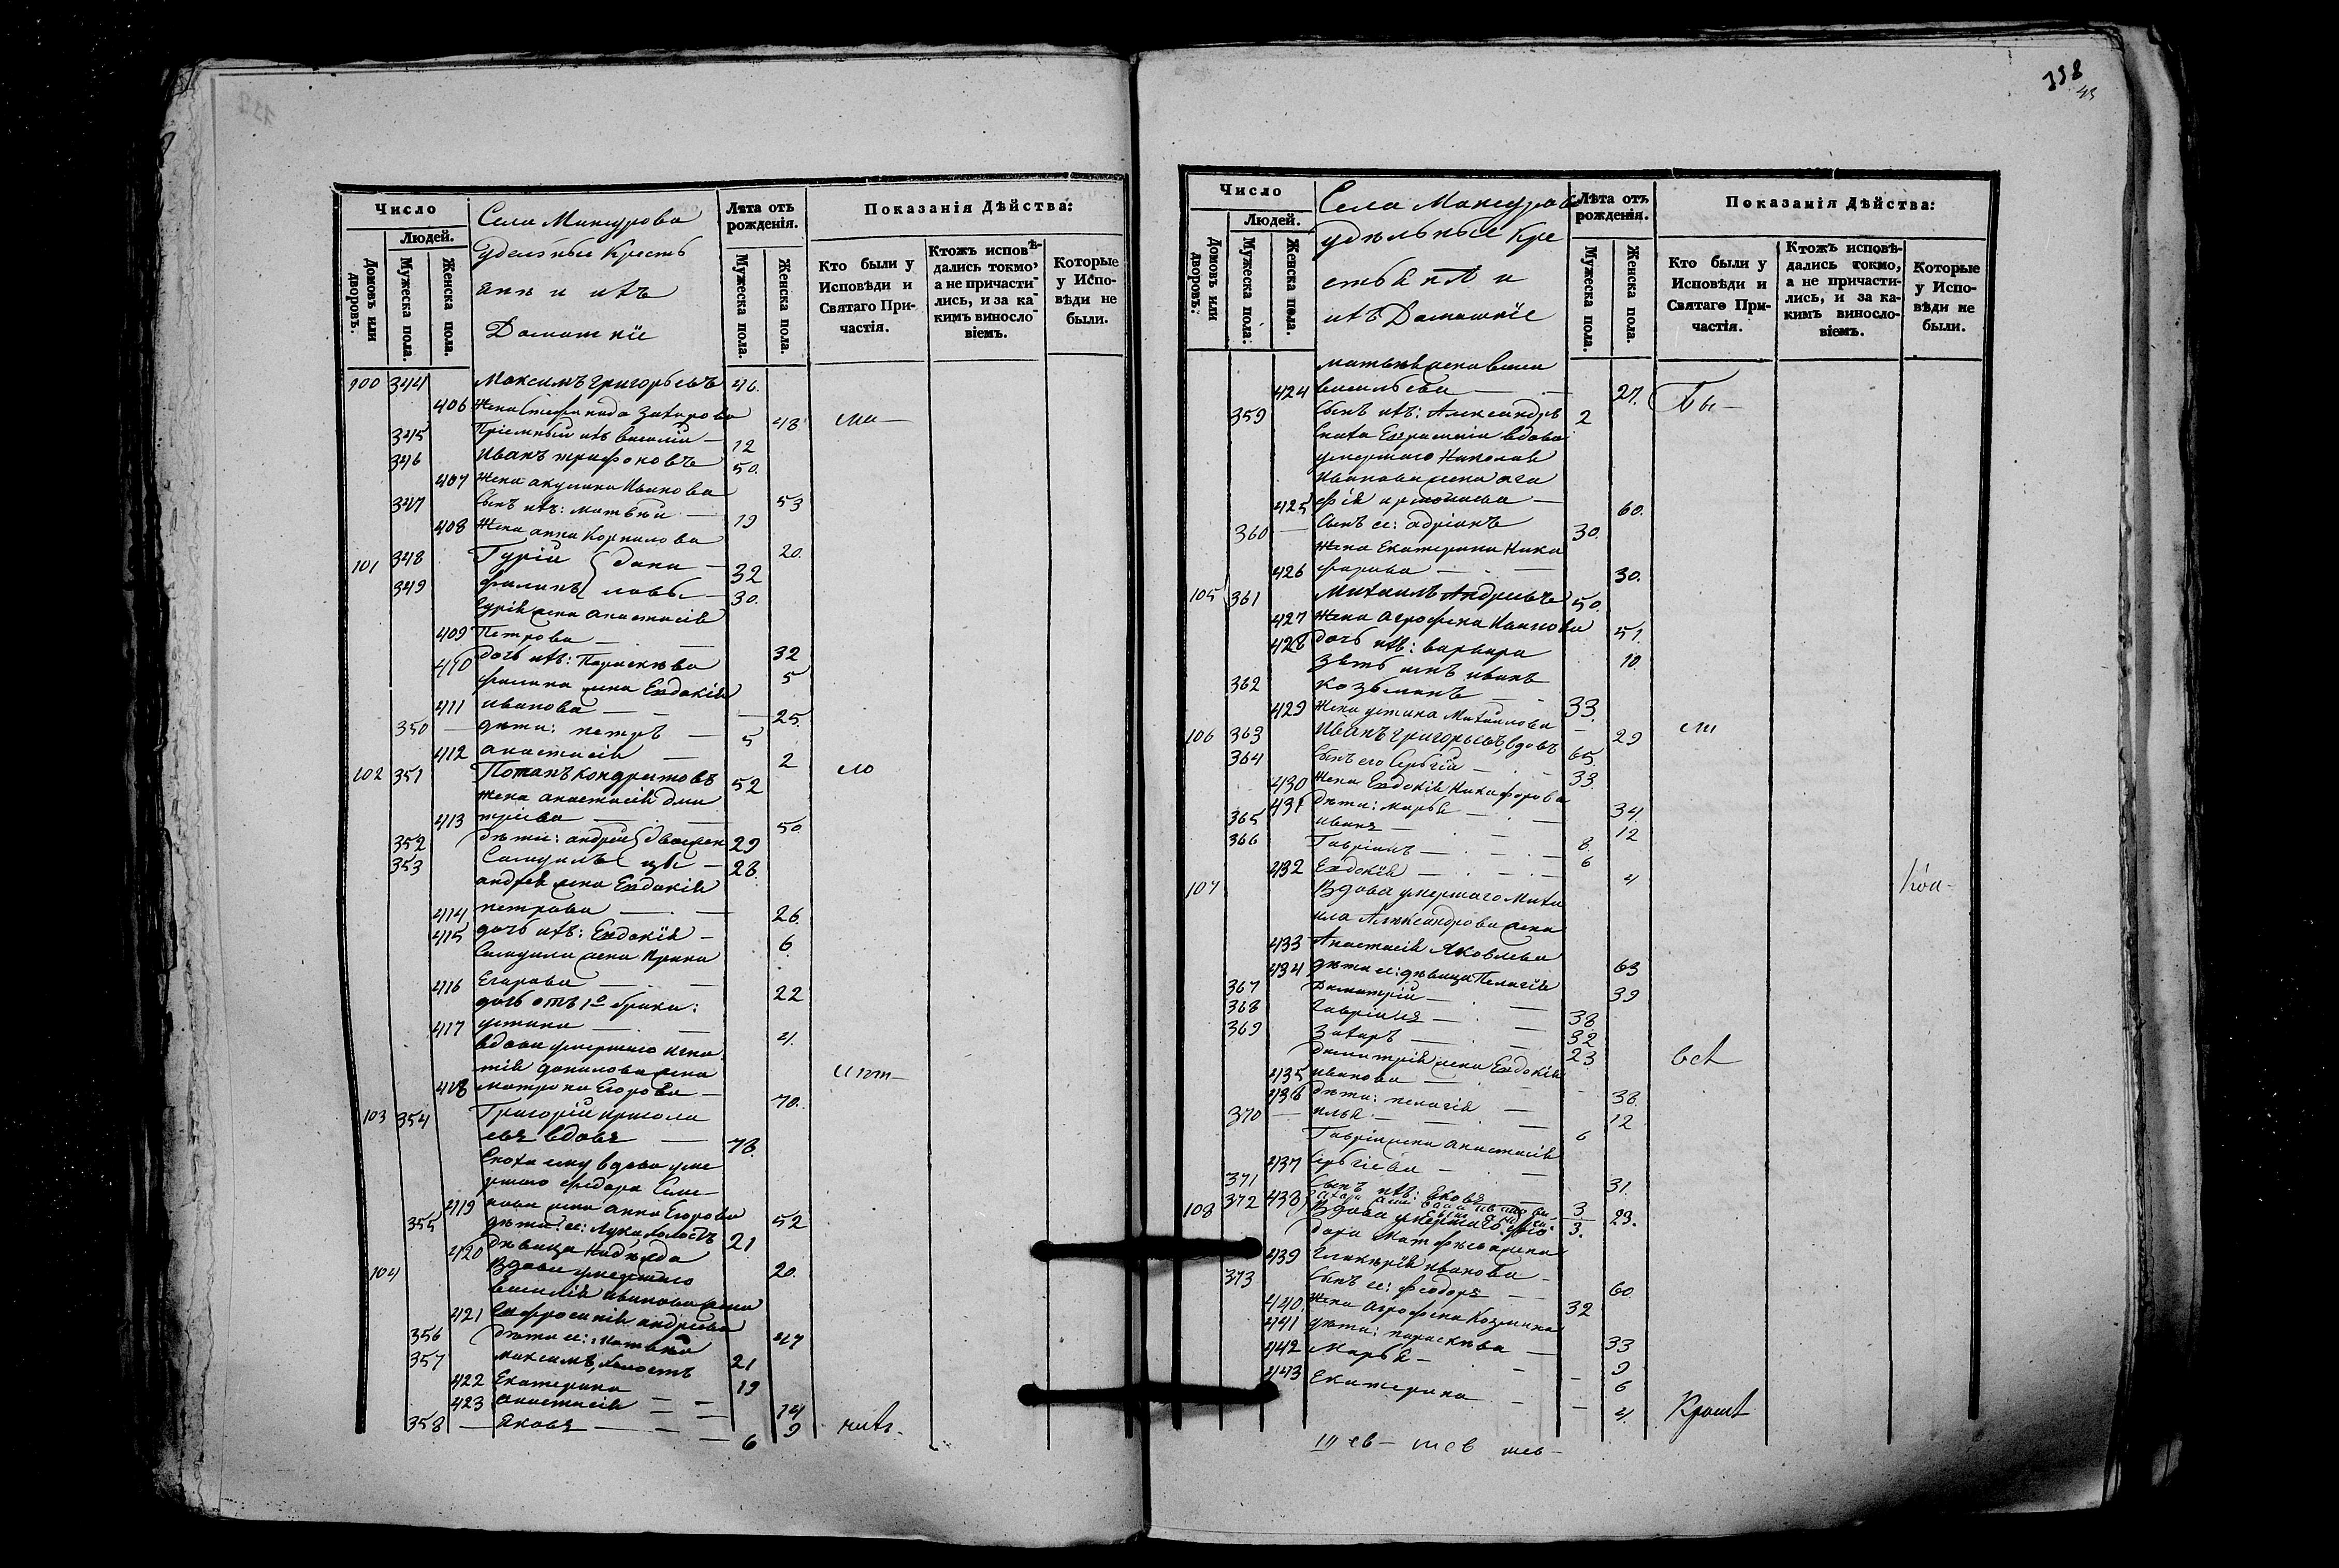 Число
Людей.
Домовъ или дворовъ.
Мужеска пола.
Женска пола.
Села Мансурова
удельные Кресть
яне и ихъ
Домашніе
Лѣта отъ рожденія.
Мужеска пола.
Женска пола.
Показанія Дѣйства:
Кто были у Исповѣди и Святаго Причастія.
Ктожъ исповѣдались токмо, а не причастились, и за какимъ винословіемъ.
Которые у Исповѣди не были.
100 344 Максимъ Григорьевъ 46.
406 Жена Стефанида Захарова 48
345 Пріемный ихъ Василій — 12
346 Иванъ Трифоновъ 50.
407 Жена Акулина Иванова 53
347 Сынъ ихъ: Матвѣй — 19
408 Жена Анна Корнилова 20.
101 348 Гурій дани — 32
349 Филипъ ловы — 30.
Гурія жена Анастасія
409 Петрова — 32
410 Дочь ихъ: Параскева 5
Филипа жена Евдокія
411 Иванова — — 25
350 — дѣти: Петръ — 5
412 Анастасія — 2
102 351 Потапъ Кондратовъ 52
Жена Анастасія Дми
413 тріева — 50
352 Дѣти: Андрей двоежен 29
353 Самуилъ цы — 28.
Андрея жена Евдокія
414 Петрова — 26
415 дочь ихъ: Евдокія — 6.
Самуила жена Ирина
416 Егорова — 22
дочь отъ 1го брака:
417 Устина — 4.
вдова умершаго Игна
тія Данилова жена
418 Матрона Егорова — 70.
103 354 Григорій Ермола
евъ вдовъ — 78.
Сноха ему вдова уме
ршаго Федора Семе—
419 нова жена Анна Егорова 52
355 дѣти ее: Лука холостъ 21
420 дѣвица Надежда 20.
104 Вдова умершаго
Василія Иванова жена
421 Евфросинія Андреева 47
356 Дѣти ее: Матвѣй 21
357 Максимъ холостъ 19
422 Екатерина — 14
423 Анастасія — 9
358 — Яковъ — 6
198
43
Число
Людей.
Домовъ или дворовъ.
Мужеска пола.
Женска пола.
Села Мансурова
удѣльные Кре
стьяне и
ихъ Домашніе
Лѣта отъ рожденія.
Мужеска пола.
Женска пола.
Показанія Дѣйства:
Кто были у Исповѣди и Святаго Причастія.
Ктожъ исповѣдались токмо, а не причастились, и за какимъ винословіемъ.
Которые у Исповѣди не были.
424 Васильева — 27. Бы—
359 Сынъ ихъ: Александръ 2
Сноха вдова
умершаго Николая
Иванова жена Ага
425 фія Ермолаева — 60.
360 — Сынъ ее: Адріанъ 30.
Жена Екатерина Ника
426 форова — 30.
105 361 Михаилъ Андреевъ 50.
427 Жена Агрофена Иванова 51.
428 Дочь ихъ: Варвара 10.
Зять имъ Иванъ
362 Козьминъ 33.
429 Жена Устина Михаилова 29
106 363 Иванъ Григорьевъ вдовъ 65.
364 Сынъ его Сергій — 33.
430 Жена Евдокія Никифорова 34.
431 Дѣти: Марья — 12
365 Иванъ — 8.
366 Гавріилъ — 6
432 Евдокія — 4
107 Вдова умершаго Миха
ила Александрова жена
433 Анастасія Яковлева 63
434 дѣти ее: дѣвица Пелагія 39
367 Димитрій — 38
368 Гавріилъ — 32
369 Захаръ — 23
Димитрія жена Евдокія
435 Иванова — 38.
436 дѣти: Пелагія — 12
370 — Илья — 6
Гавріила жена Анастасія
437 Сергіева — 31.
371 Сынъ ихъ: Яковъ 3
372 438 3. 23.
108 Вдова умершаго Фео
дора Матфѣева жена
439 Гликерія Иванова — 60
373 Сынъ ее: Феодоръ — 32
440. Жена Агрофена Козмина 33
441 дѣти: Параскева — 9
442 Марья — 6
443 Екатерина — 4.
всѣ